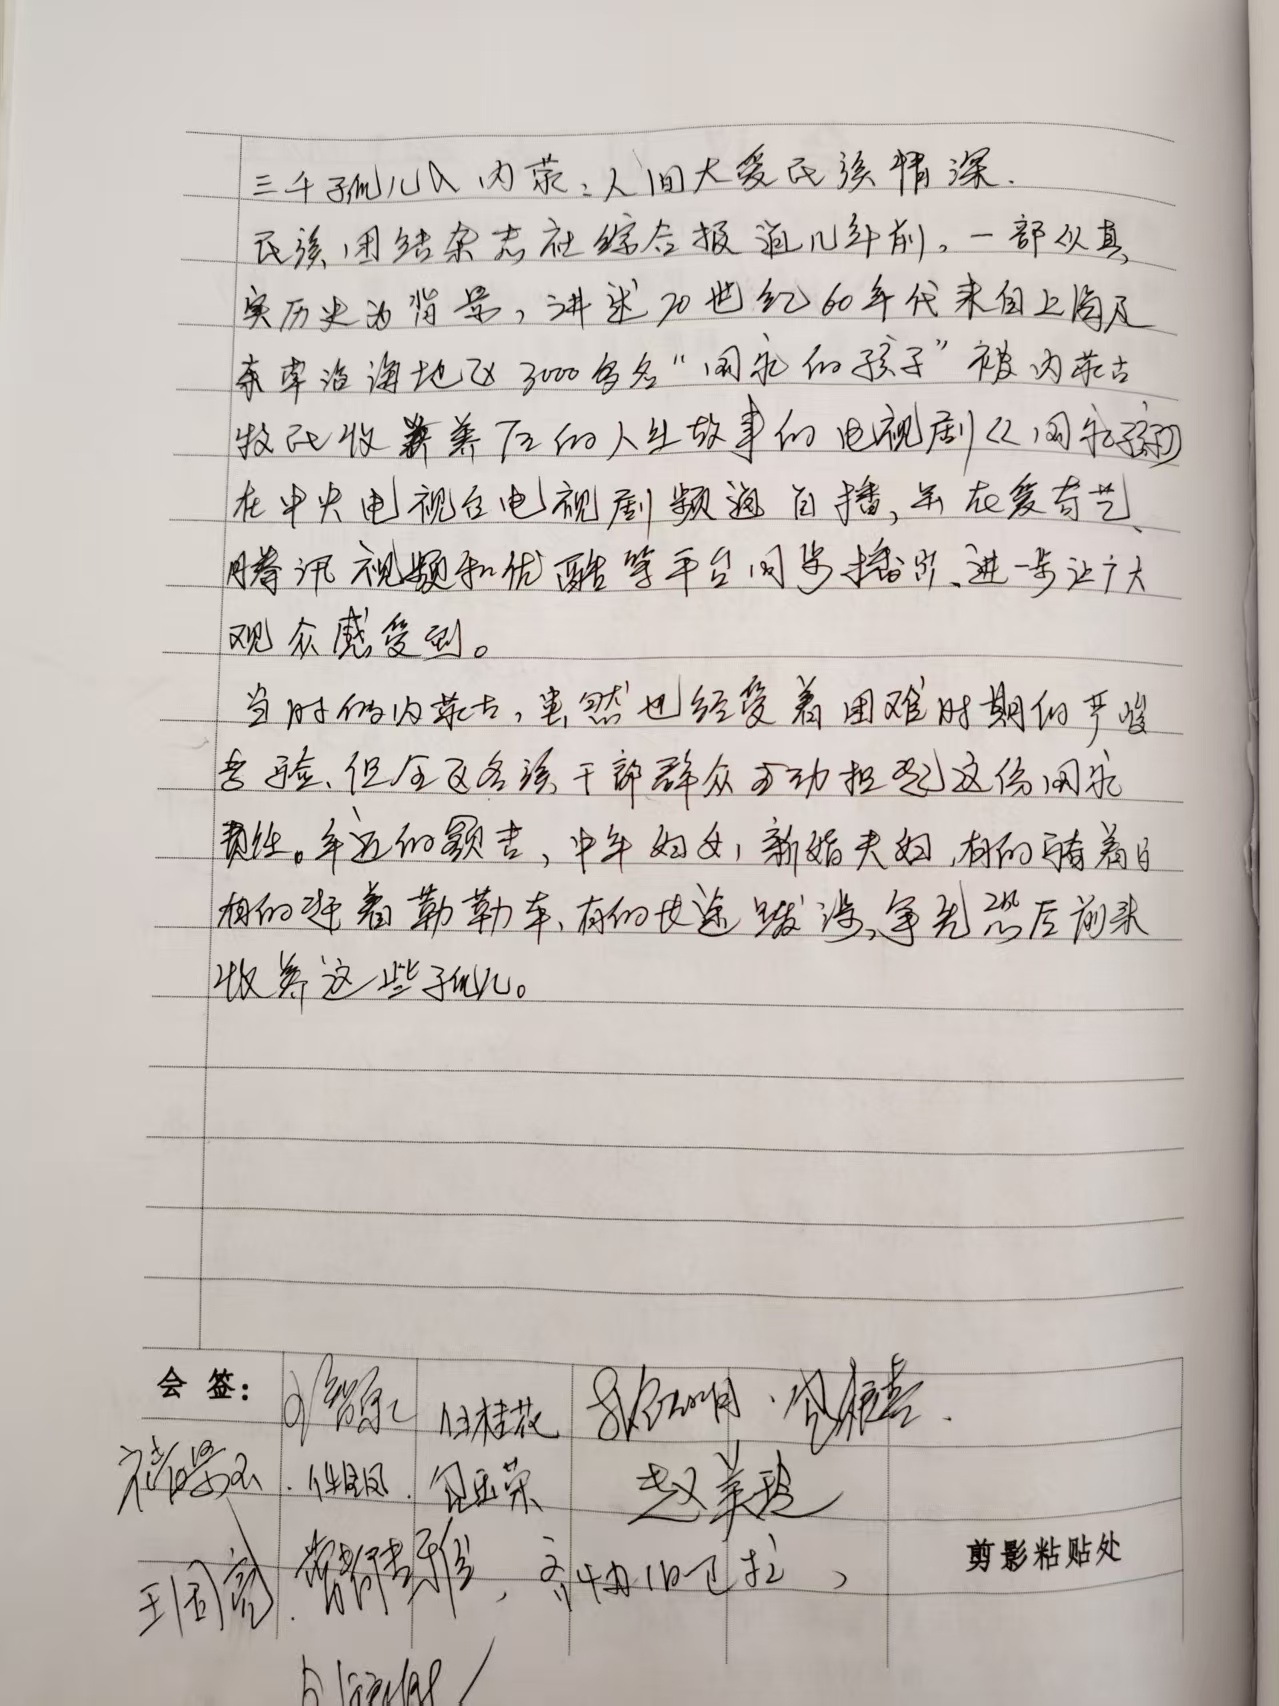 三千孤儿入内蒙：人间大爱民族情深.
民族团结杂志社综合报道几年前，一部以真
实历史为背景，讲述20世纪60年代来自上海及
东南沿海地区3000多名“国家的孩子”被内蒙古
牧民收养 后的人生故事的电视剧《国家孩子》
在中央电视台电视剧频道首播，并在爱奇艺、
腾讯视频和优酷等平台同步播出、进一步让广大
观众感受到。
当时的内蒙古，虽然也经受着困难时期的严峻
考验、但全区各族干部群众主动担起这份国家
责任。年迈的额吉，中年妇女，新婚夫妇，有的骑着马
有的赶着勒勒车、有的长途跋涉，争先恐后前来
收养这些孤儿。
会签：
桂花
包玉荣
赵美玲
剪影粘贴处